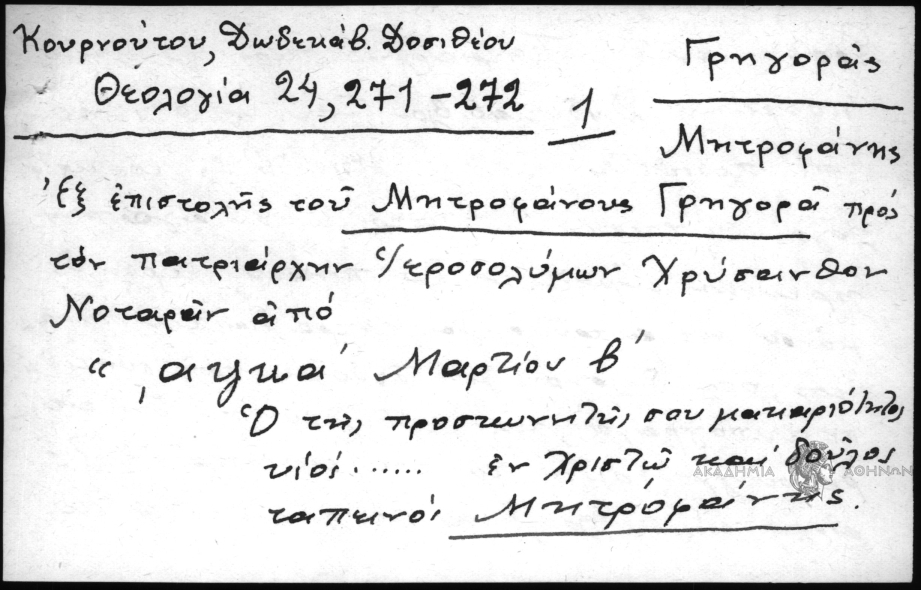 Κουρνούτου, Δωδεκάβ. Δοσιθέου
Θεολογία 24, 271-272
1
Γρηγοράς
Μητροφάνης
Ἐξ ἐπιστολῆς τοῦ Μητροφάνους Γρηγορᾶ πρός
τόν πατριάρχην Ἱεροσολύμων Χρύσανθον
Νοταρᾶν ἀπό
“ ͵αψκα΄ Μαρτίου β΄
Ὁ τῆς προσκυνητῆς σου μακαριότητος
υἱός ...... ἐν Χριστῷ καί δοῦλος
ταπεινός Μητροφάνης.
ΑΚΑΔΗΜΙΑ ΑΘΗΝΩΝ